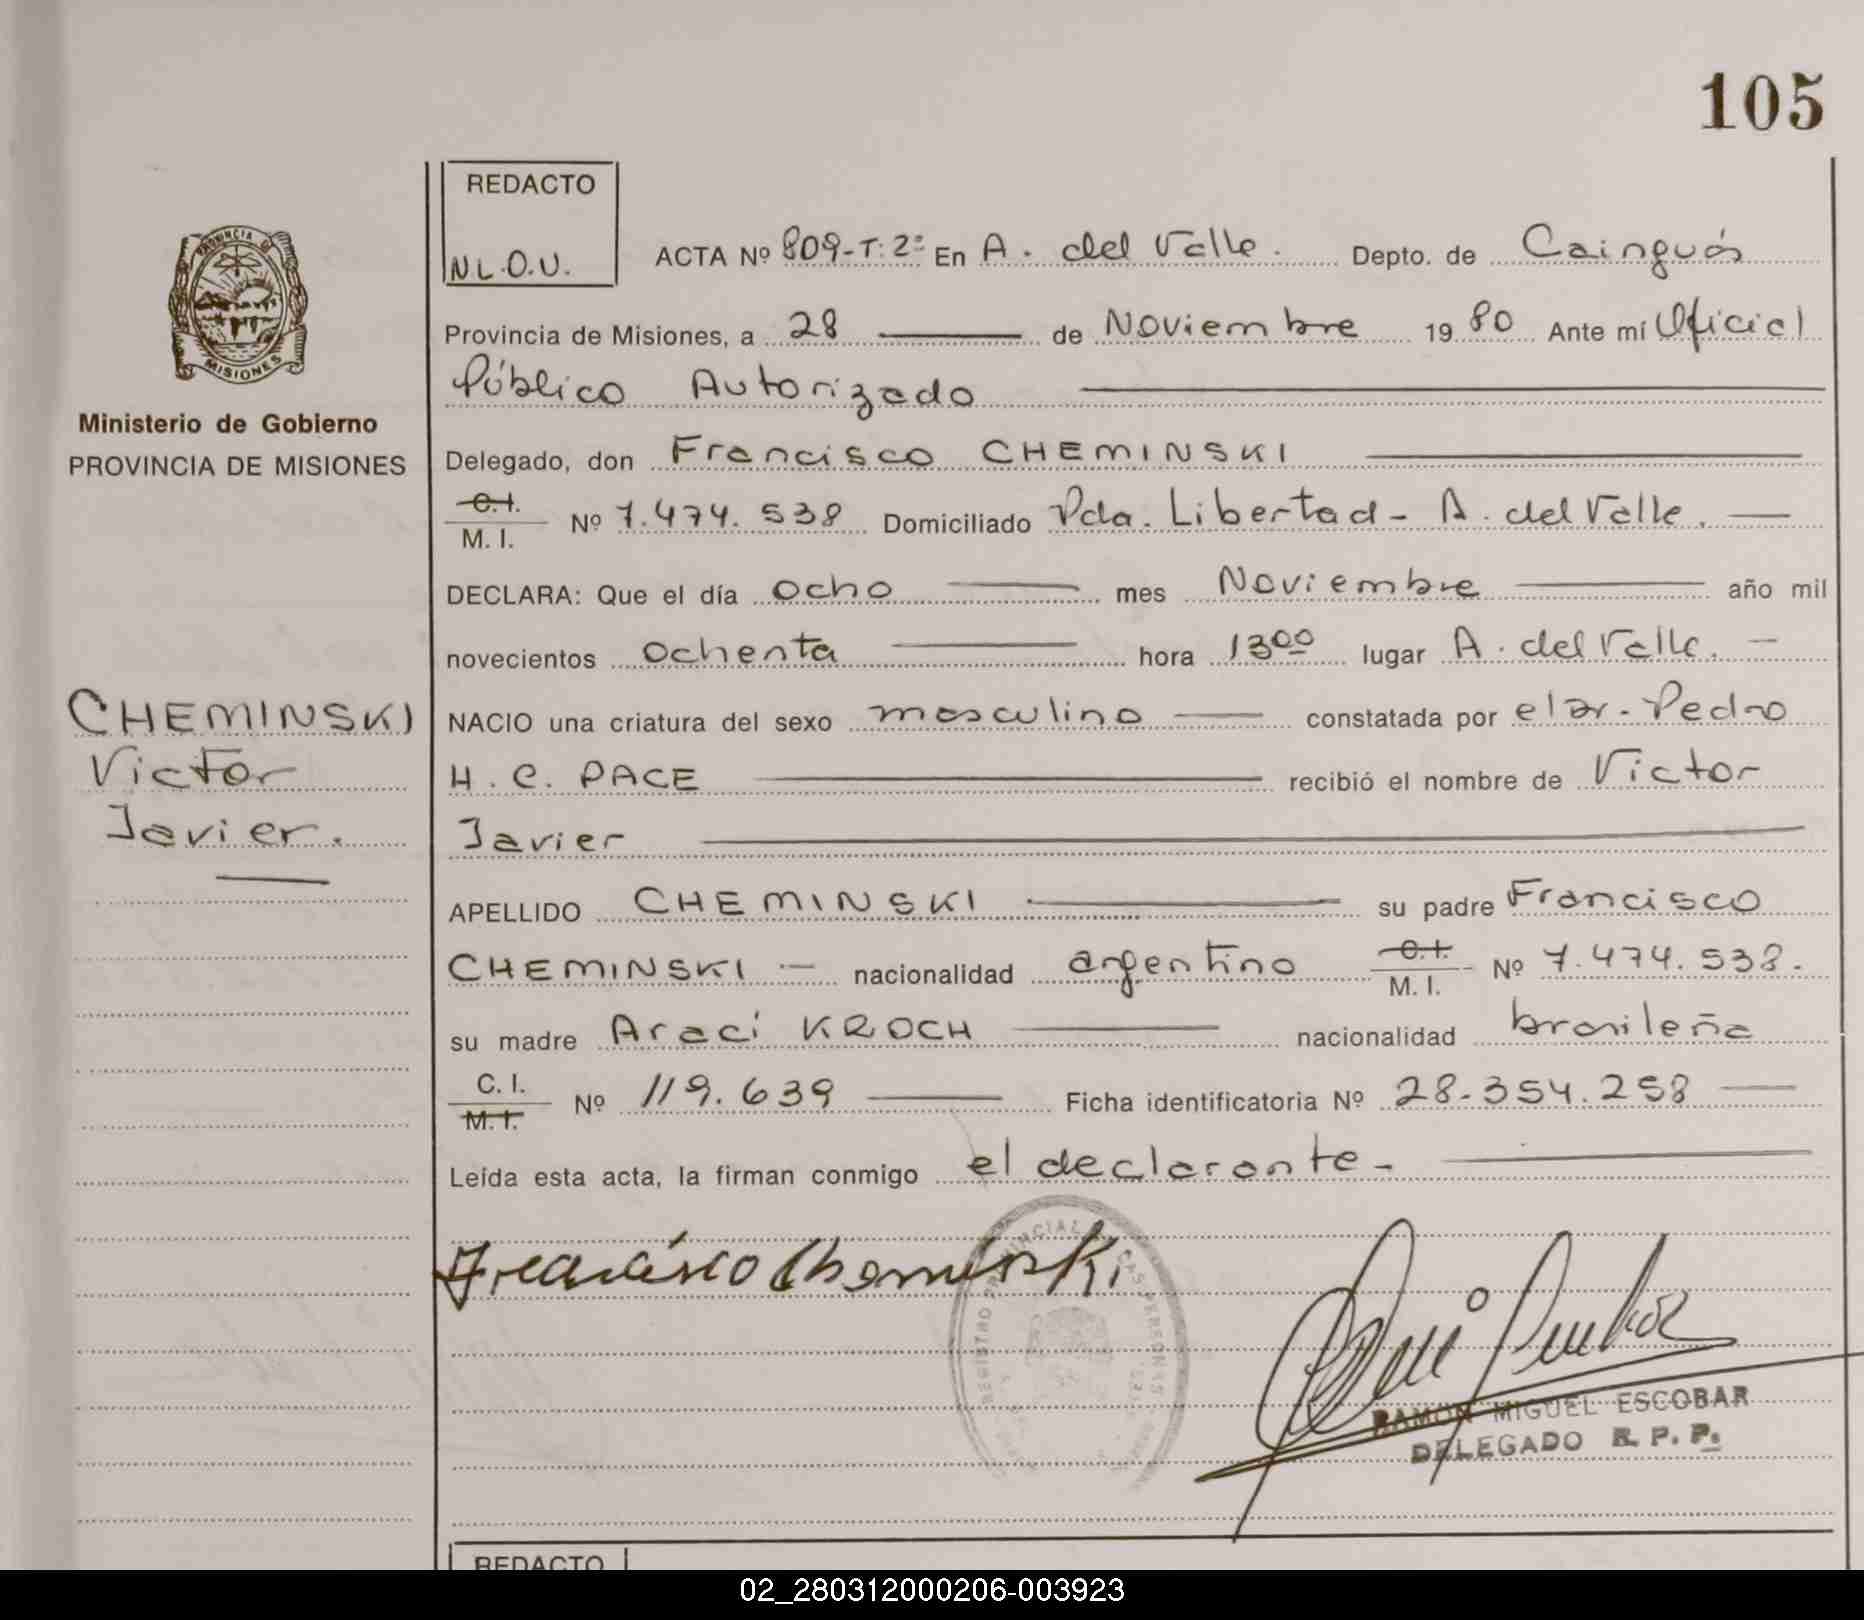 105
REDACTO
N L.O.U.
ACTA Nº 809-T:2º En A. del Valle. Depto. de Cainguás
Provincia de Misiones, a 28 de Noviembre 1980 Ante mí Oficial
Público Autorizado
Delegado, don Francisco CHEMINSKI
C.I. M. I. Nº 7.474.538 Domiciliado Pda. Libertad - A. del Valle.
DECLARA: Que el día ocho mes Noviembre año mil
novecientos ochenta hora 13⁰⁰ lugar A. del Valle.
NACIO una criatura del sexo masculino constatada por el Dr. Pedro
H. C. PACE recibió el nombre de Victor
Javier
APELLIDO CHEMINSKI su padre Francisco
CHEMINSKI - nacionalidad argentino C.I. M. I. Nº 7.474.538.
su madre Araci KROCH nacionalidad brasileña
C. I. M. I. Nº 119.639 Ficha identificatoria Nº 28.354.258
Leída esta acta, la firman conmigo el declarante -
Francisco Cheminski
REGISTRO PROVINCIAL
RAMON MIGUEL ESCOBAR
DELEGADO R. P. P.
PROVINCIA DE
MISIONES
Ministerio de Gobierno
PROVINCIA DE MISIONES
CHEMINSKI
Victor
Javier.
REDACTO
02_280312000206-003923